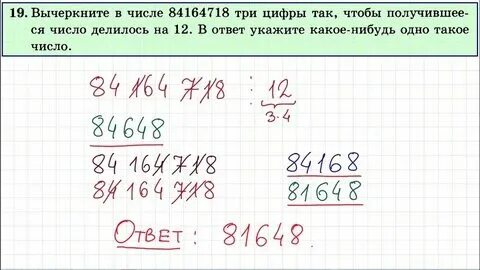 19. Вычеркните в числе 84164718 три цифры так, чтобы получившее-
ся число делилось на 12. В ответ укажите какое-нибудь одно такое
число.
84 164 718 : 12
3·4
84648
84 164718
84168
84 164 718
81648
Ответ: 81648.